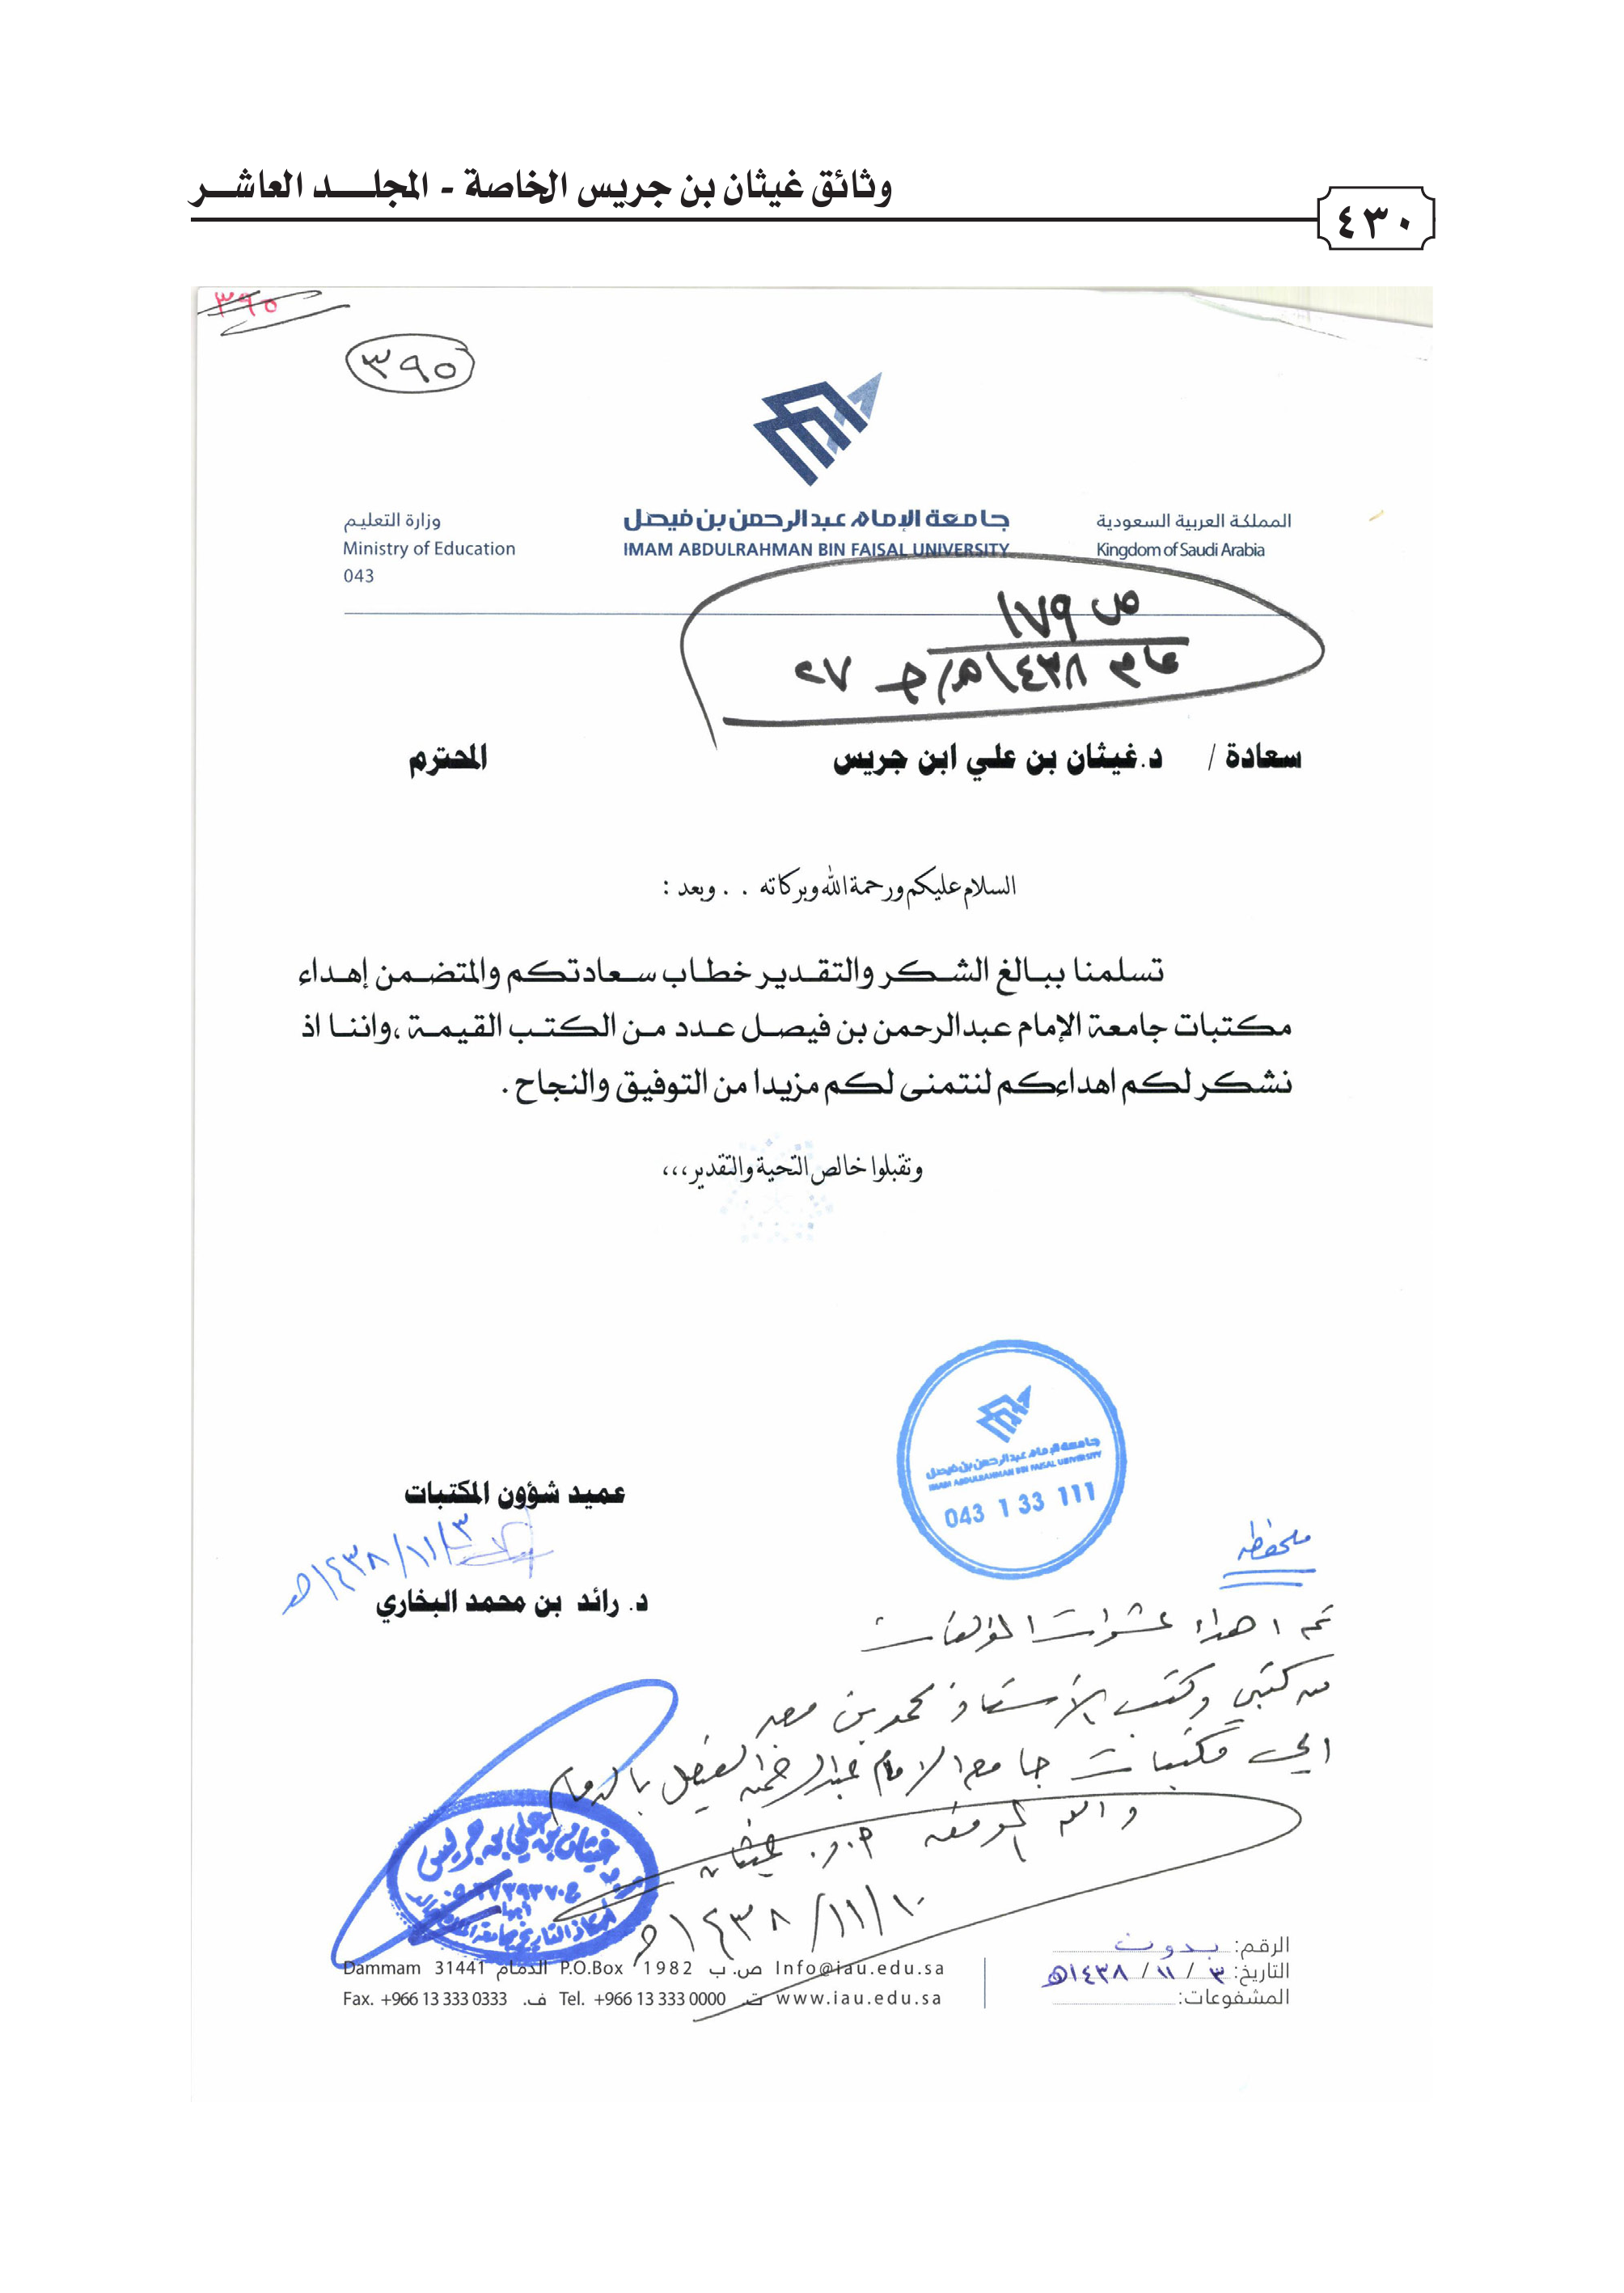 وثائق غيثان بن جريس الخاصة - المجلـــد العاشـــر
٤٣٠
٣٩٥
٣٩٥
المملكة العربية السعودية
Kingdom of Saudi Arabia
جامعة الإمام عبدالرحمن بن فيصل
IMAM ABDULRAHMAN BIN FAISAL UNIVERSITY
وزارة التعليم
Ministry of Education
043
ص ١٧٩
عام ١٤٣٨هـ/ج ٧٢
سعادة / د.غيثان بن علي ابن جريس المحترم
السلام عليكم ورحمة الله وبركاته . . وبعد :
تسلمنا ببالغ الشكر والتقدير خطاب سعادتكم والمتضمن إهداء
مكتبات جامعة الإمام عبدالرحمن بن فيصل عدد من الكتب القيمة ،واننا اذ
نشكر لكم اهداءكم لنتمنى لكم مزيدا من التوفيق والنجاح .
وتقبلوا خالص التحية والتقدير،،،
جامعة الإمام عبدالرحمن بن فيصل
IMAM ABDULRAHMAN BIN FAISAL UNIVERSITY
043 1 33 111
عميد شؤون المكتبات
١٤٣٨/١١/٣هـ
د. رائد بن محمد البخاري
ملحفظه
تم اهداء عشرات المؤلفات
من كتبي وكتب الأستاذ محمد بن معبر
الى مكتبات جامعة الامام عبدالرحمن الفيصل بالدمام
والله الموفق غيثان
١٤٣٨/١١/١٠هـ
غيثان بن علي بن جريس
أبها
أستاذ التاريخ بجامعة الملك خالد
الرقم: بدون
التاريخ: ٣ / ١١ / ١٤٣٨هـ
المشفوعات:
Dammam 31441 الدمام P.O.Box 1982 ص. ب Info@iau.edu.sa
Fax. +966 13 333 0333 ف. Tel. +966 13 333 0000 ت www.iau.edu.sa